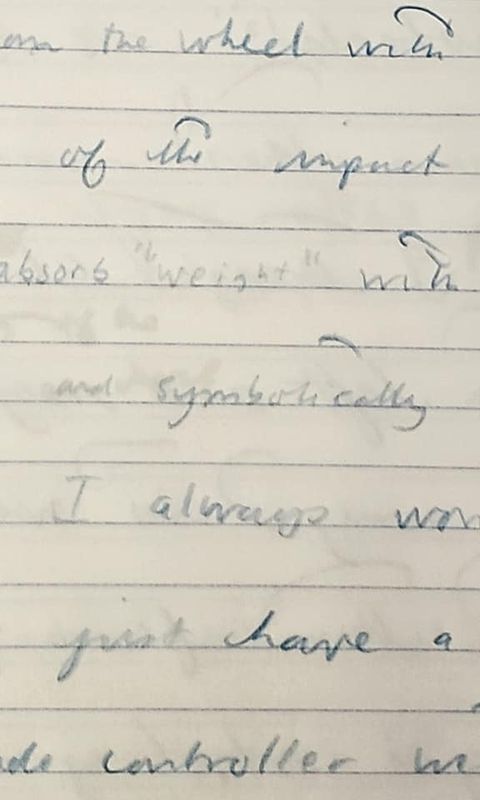 on the wheel with
of the impact
absorb "weight" with
and symbolically
I always
just have a
controller we